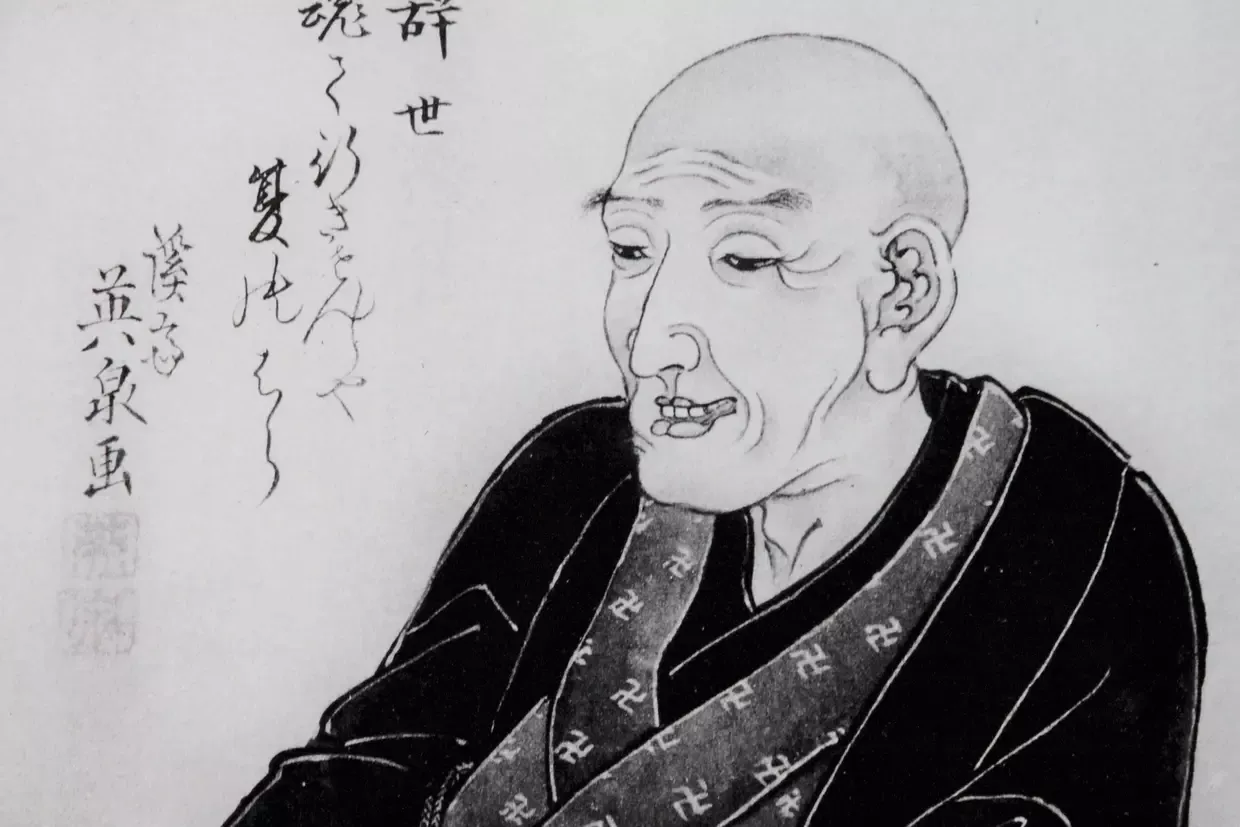 辞世
魂て行きさんしや
夏のはら
溪斎
英泉画